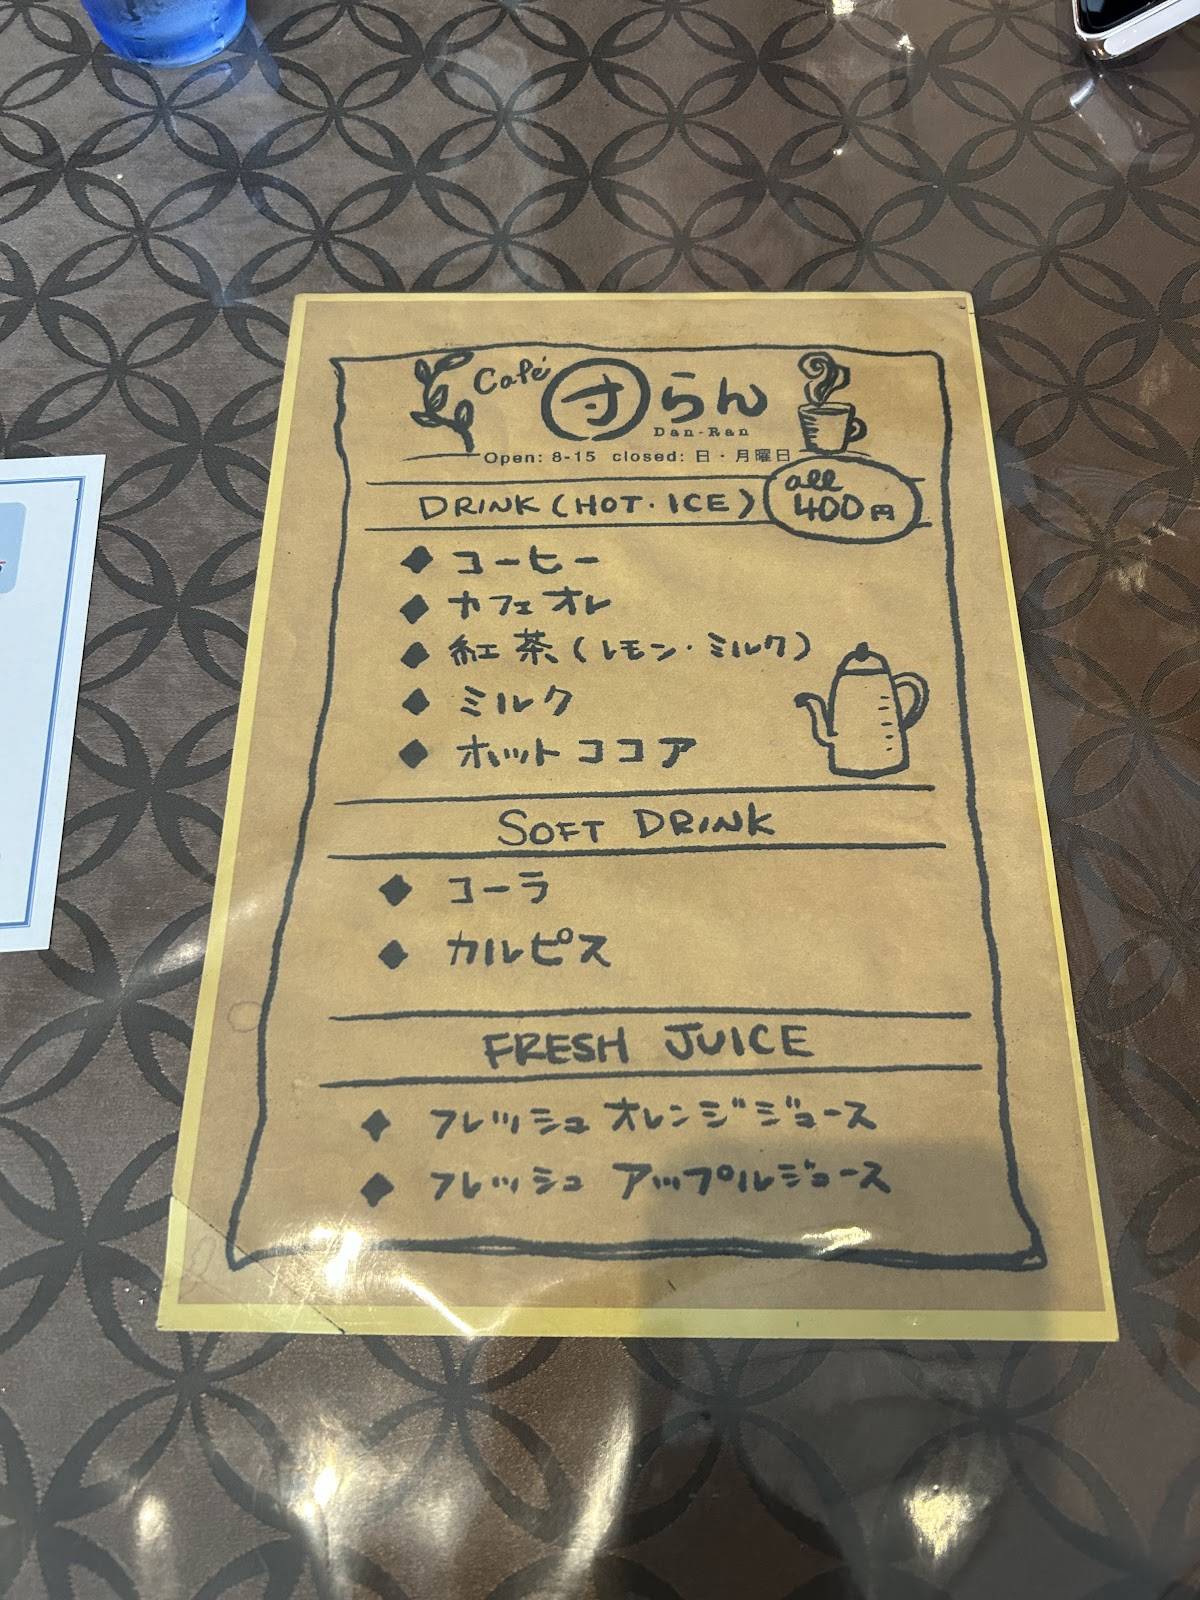 Café 団らん
Dan-Ran
Open: 8-15 closed: 日・月曜日
DRINK (HOT・ICE) all 400円
◆ コーヒー
◆ カフェオレ
◆ 紅茶 (レモン・ミルク)
◆ ミルク
◆ ホットココア
SOFT DRINK
◆ コーラ
◆ カルピス
FRESH JUICE
◆ フレッシュ オレンジジュース
◆ フレッシュ アップルジュース